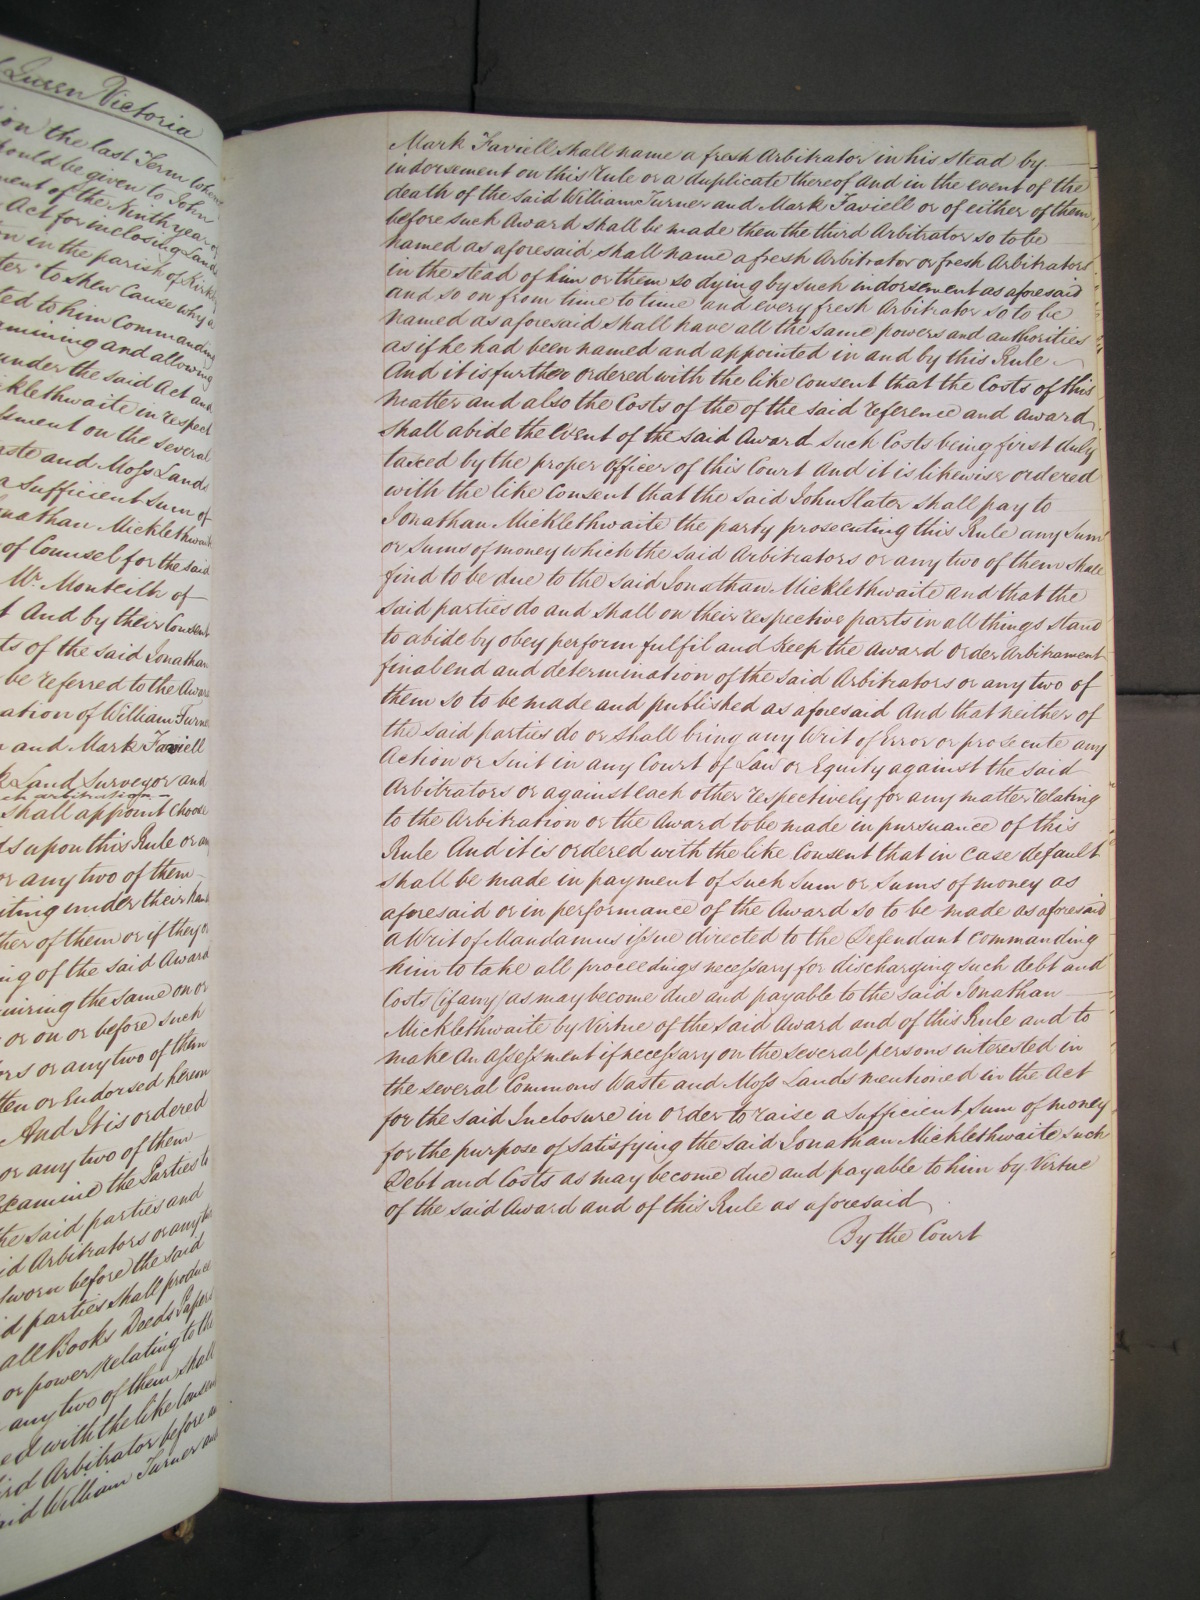 Queen Victoria
on the last Term
should be given to John
ment of the Ninth year of
Act for inclosing Lands
on in the parish of Kirk
to shew Cause why a
ted to him Commanding
amining and allowing
under the said Act and
cklethwaite in respect
sment on the several
aste and Moss Lands
a sufficient Sum of
nathan Micklethwaite
of Counsel for the said
Mr. Monteith of
t And by their Consent
ts of the said Jonathan
be referred to the Award
ation of William Turner
n and Mark Faviell
Land Surveyor and
shall appoint Choose
ds upon this Rule or any
or any two of them
iting under their hands
ther of them or if they or
ing of the said Award
uiring the same on or
or on or before such
ors or any two of them
tten or Endorsed hereon
And It is ordered
or any two of them
Examine the Parties to
the said parties and
id Arbitrators or any two
sworn before the said
d parties shall produce
all Books Deeds Papers
or power relating to the
any two of them shall
ed with the like Consent
ird Arbitrator before
aid William Turner and
Mark Faviell shall name a fresh Arbitrator in his stead by
indorsement on this rule or a duplicate thereof And in the event of the
death of the said William Turner and Mark Faviell or of either of them
before such Award shall be made then the third Arbitrator so to be
named as aforesaid shall name a fresh Arbitrator or fresh Arbitrators
in the stead of him or them so dying by such indorsement as aforesaid
and so on from time to time and every fresh Arbitrator so to be
named as aforesaid shall have all the same powers and authorities
as if he had been named and appointed in and by this Rule
And it is further ordered with the like Consent that the Costs of this
matter and also the Costs of the of the said reference and Award
shall abide the Event of the said Award such Costs being first duly
taxed by the proper officer of this Court And it is likewise ordered
with the like Consent that the said John Slater shall pay to
Jonathan Micklethwaite the party prosecuting this Rule any Sum
or Sums of money which the said Arbitrators or any two of them shall
find to be due to the said Jonathan Micklethwaite and that the
said parties do and shall on their respective parts in all things stand
to abide by obey perform fulfil and Keep the Award Order Arbitrament
final end and determination of the said Arbitrators or any two of
them so to be made and published as aforesaid And that neither of
the said parties do or shall bring any Writ of Error or prosecute any
Action or Suit in any Court of Law or Equity against the said
Arbitrators or against each other respectively for any matter relating
to the Arbitration or the Award to be made in pursuance of this
Rule And it is ordered with the like Consent that in Case default
shall be made in payment of such Sum or Sums of money as
aforesaid or in performance of the Award so to be made as aforesaid
a Writ of Mandamus issue directed to the Defendant Commanding
him to take all proceedings necessary for discharging such debt and
Costs (if any) as may become due and payable to the said Jonathan
Micklethwaite by Virtue of the said Award and of this Rule and to
make an assessment if necessary on the several persons interested in
the several Commons Waste and Moss Lands mentioned in the Act
for the said Inclosure in order to raise a sufficient Sum of money
for the purpose of satisfying the said Jonathan Micklethwaite such
Debt and Costs as may become due and payable to him by Virtue
of the said Award and of this Rule as aforesaid
By the Court